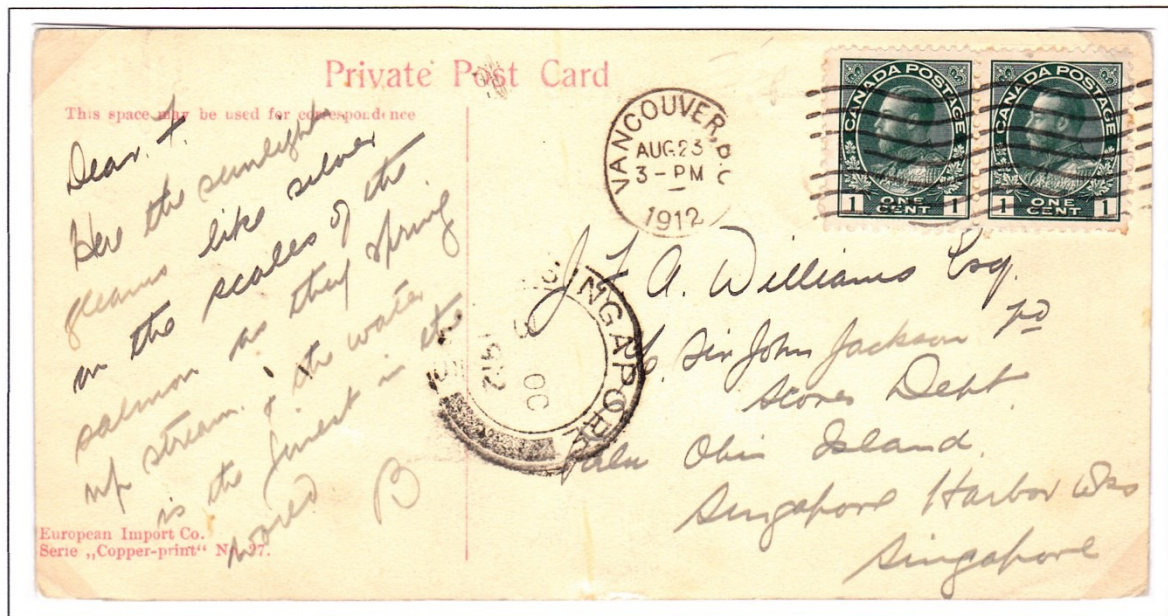 Private Post Card
This space may be used for correspondence
Dear. F.
Here the sunlight
gleams like silver
on the scales of the
salmon as they spring
up stream. & the water
is the finest in the
world.
B
European Import Co.
Serie „Copper-print“ No. 27.
VANCOUVER, B.C
AUG 23
3-PM
1912
CANADA POSTAGE
1 ONE CENT 1
CANADA POSTAGE
1 ONE CENT 1
SINGAPORE
OC
1912
J L A. Williams Esq.
Sir John Jackson
Stores Dept.
Island
Singapore Harbor Wks
Singapore